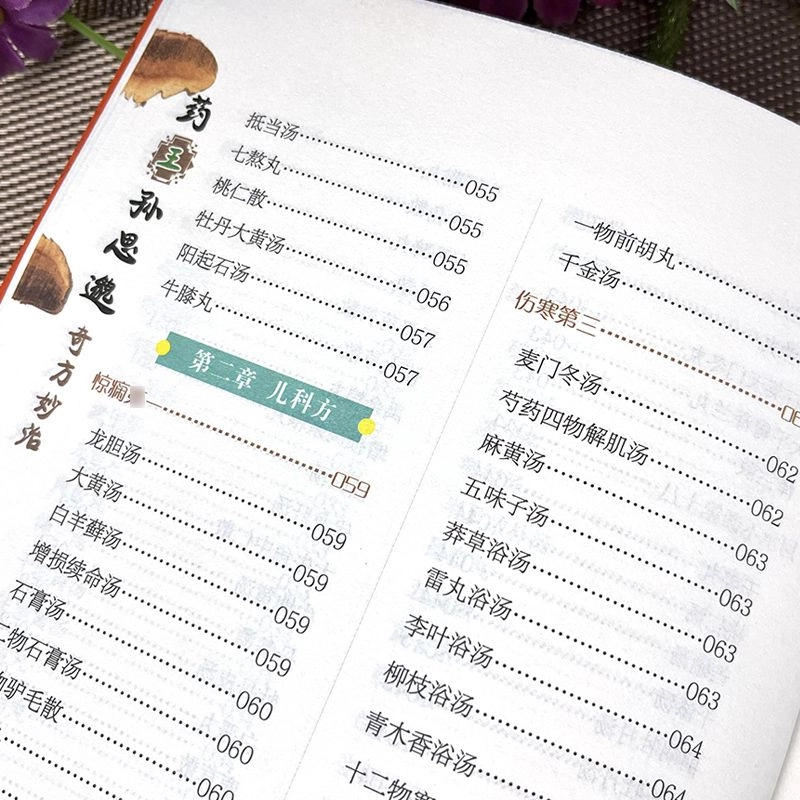 药王孙思邈
奇方妙治
抵当汤……055
七熬丸……055
桃仁散……055
牡丹大黄汤……056
阳起石汤……057
牛膝丸……057
第二章 儿科方
惊痫……059
龙胆汤……059
大黄汤……059
白羊藓汤……059
增损续命汤……059
石膏汤……060
二物石膏汤……060
物驴毛散……060
一物前胡丸……
千金汤……
伤寒第三……06
麦门冬汤……062
芍药四物解肌汤……062
麻黄汤……063
五味子汤……063
莽草浴汤……063
雷丸浴汤……063
李叶浴汤……064
柳枝浴汤……064
青木香浴汤……
十二物寒